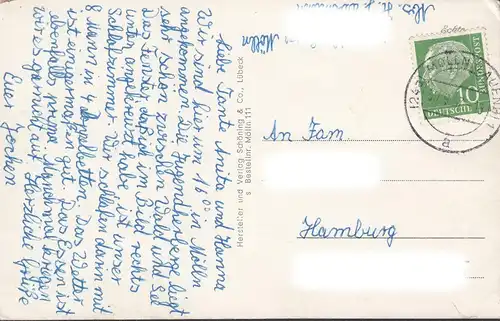 Mölln
Liebe Tante Anita und Hanna
Wir sind hier um 16 00 in Mölln
angekommen. Die Jugendherberge liegt
sehr schön zwischen Wald und See.
Das Fenster das ich im Bild rechts
unten angekreuzt habe ist unser
Schlafzimmer. Wir schlafen darin mit
8 Mann in 4 Doppelbetten. Das Wetter
ist einigermaßen gut. Das Essen ist
ebenfalls prima. Manchmal kriegen
wir's gar nicht auf. Herzliche Grüße
Euer Jochen
Hersteller und Verlag Schöning & Co., Lübeck
s Bestellnr. Mölln 111
DEUTSCHE
BUNDESPOST
10
MÖLLN
a
An Fam
Hamburg